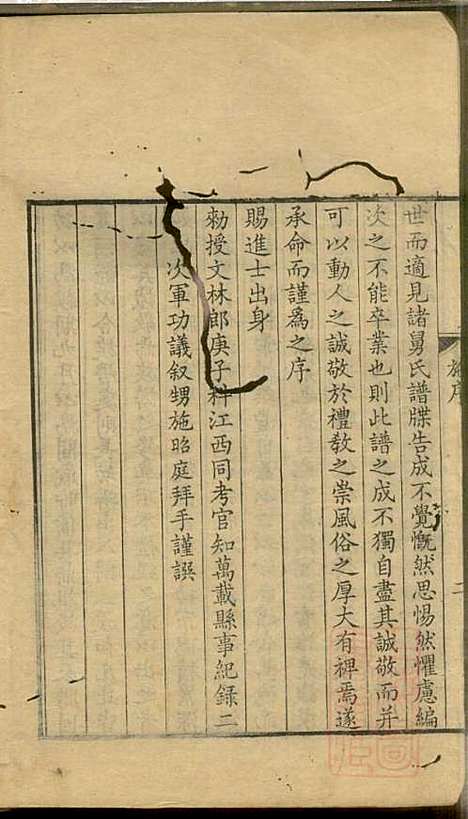 世而適見諸舅氏譜牒告成不覺慨然思惕然懼慮編
次之不能卒業也則此譜之成不獨自盡其誠敬而并
可以動人之誠敬於禮教之崇風俗之厚大有裨焉遂
承命而謹為之序
賜進士出身
勅授文林郎庚子科江西同考官知萬載縣事紀録二
次軍功議叙甥施昭庭拜手謹譔